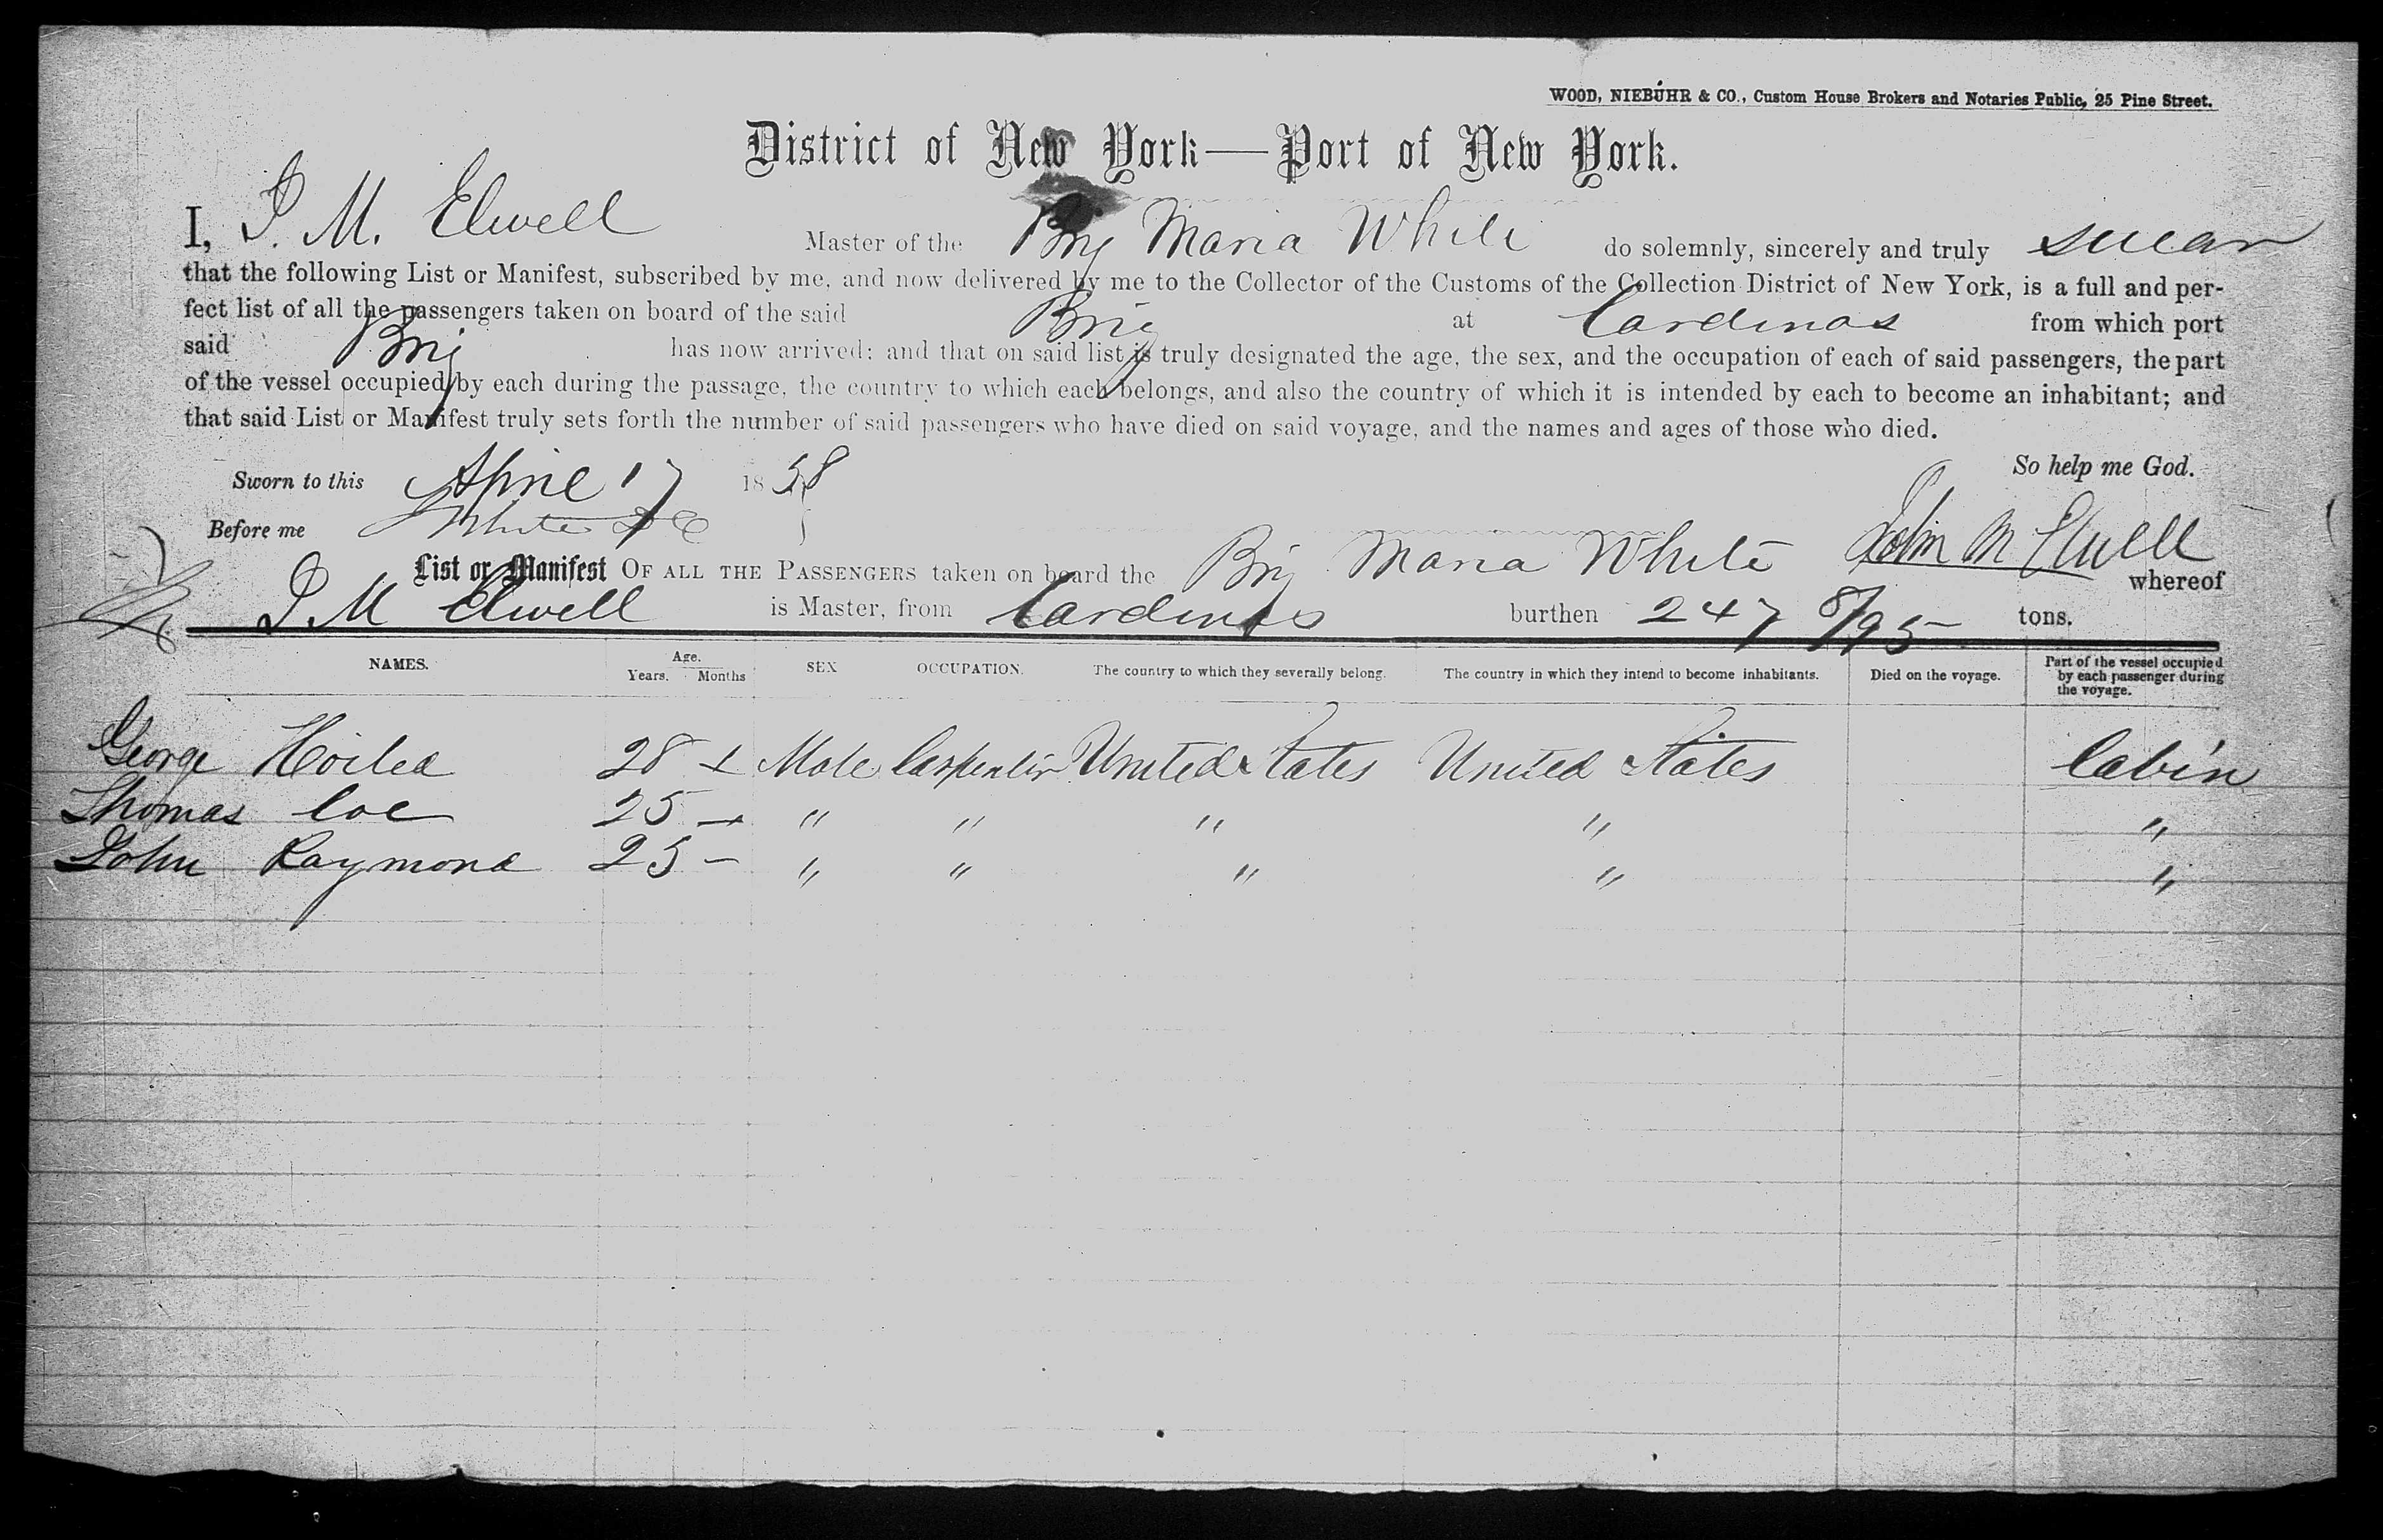 WOOD, NIEBUHR & CO., Custom House Brokers and Notaries Public, 25 Pine Street.
District of New York—Port of New York.
I, J. M. Elwell Master of the Brig Maria White do solemnly, sincerely and truly swear
that the following List or Manifest, subscribed by me, and now delivered by me to the Collector of the Customs of the Collection District of New York, is a full and per-
fect list of all the passengers taken on board of the said Brig at Cardenas from which port
said Brig has now arrived; and that on said list is truly designated the age, the sex, and the occupation of each of said passengers, the part
of the vessel occupied by each during the passage, the country to which each belongs, and also the country of which it is intended by each to become an inhabitant; and
that said List or Manifest truly sets forth the number of said passengers who have died on said voyage, and the names and ages of those who died.
Sworn to this April 17 1858 So help me God.
Before me White John M Elwell
List or Manifest OF ALL THE PASSENGERS taken on board the Brig Maria White whereof
J M Elwell is Master, from Cardenas burthen 247 8/95 tons.
NAMES. Age. Years. Months SEX OCCUPATION. The country to which they severally belong. The country in which they intend to become inhabitants. Died on the voyage. Part of the vessel occupied by each passenger during the voyage.
George 28 Male Carpenter United States United States Cabin
Thomas Coe 25 — " " " " "
John Raymond 25 — " " " " "